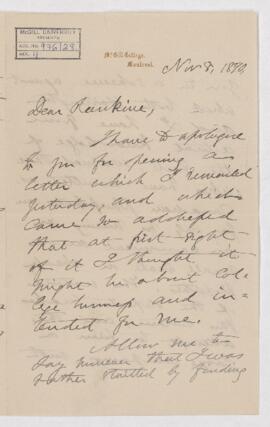 McGILL UNIVERSITY
ARCHIVES
ACC. NO. 976/28
REF. 4
McGill College,
Montreal.
Nov 8, 1890,
Dear Rankine,
I have to apologize
to you for opening a
letter which I remailed
yesterday, and which
came so addressed
that at first sight
of it I thought it
might be about Col-
lege business and in-
tended for me.
Allow me to
say however that I was
rather startled by finding